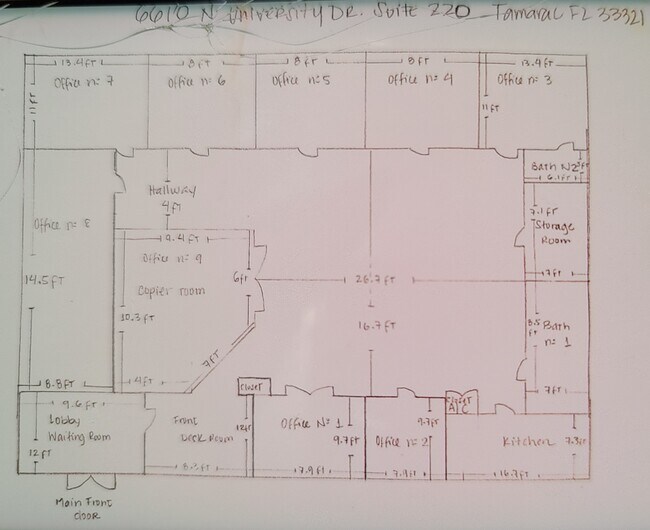 6610 N University DR. Suite 220 Tamarac FL 33321
13.4FT 8FT 8FT 8FT 13.9FT
Office n= 7 Office n= 6 Office n=5 Office n= 4 Office n= 3
11 FT
11FT
Bath N2
6.1FT
Hallway
4 FT
Office n= 8
14.5FT
8.8FT
9.4FT
Office n= 9
Copier room
6FT
10.3 FT
4FT
7FT
26.7 FT
16.7FT
7.1FT
Storage
Room
7FT
8.5
FT
Bath
n= 1
7FT
9.6 FT
Lobby
Waiting Room
12 FT
Main Front
door
Front
Desk Room
12FT
8.3FT
Closet
Office N= 1
9.7FT
7.9FT
9.7FT
Office n=2
7.9FT
Closet
A/C
Kitchen
7.3FT
16.7FT